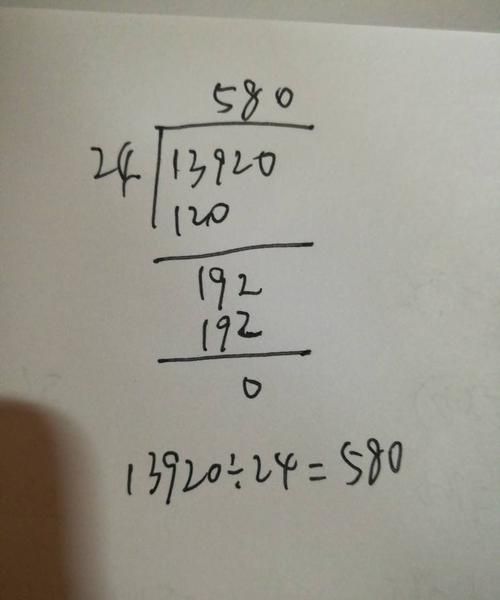 580
24 13920
120
192
192
0
13920÷24=580